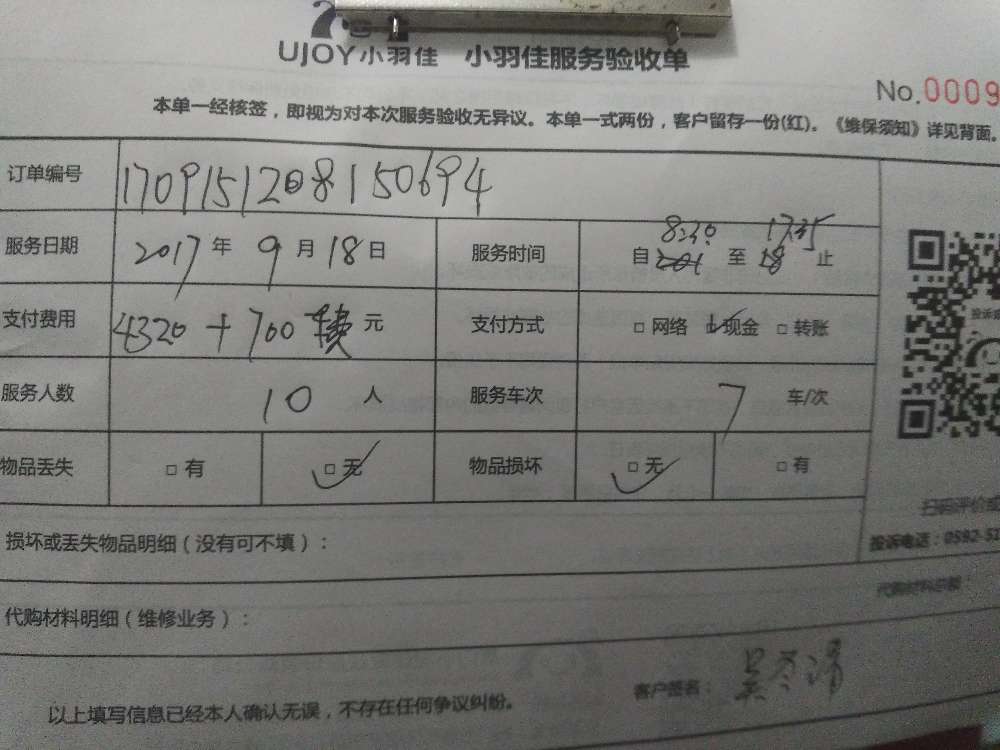 UJOY小羽佳 小羽佳服务验收单
No.0009
本单一经核签，即视为对本次服务验收无异议。本单一式两份，客户留存一份(红)。《维保须知》详见背面。
订单编号 1709151208150694
服务日期 2017年9月18日 服务时间 自8:30至17:35止
支付费用 4320+700 元 支付方式 □网络 □现金 □转账
服务人数 10人 服务车次 7车/次
物品丢失 □有 □无 物品损坏 □无 □有
投诉
扫码评价或
损坏或丢失物品明细（没有可不填）：
投诉电话：0592-51
代购材料明细（维修业务）：
代购材料总额：
客户签名：
以上填写信息已经本人确认无误，不存在任何争议纠纷。